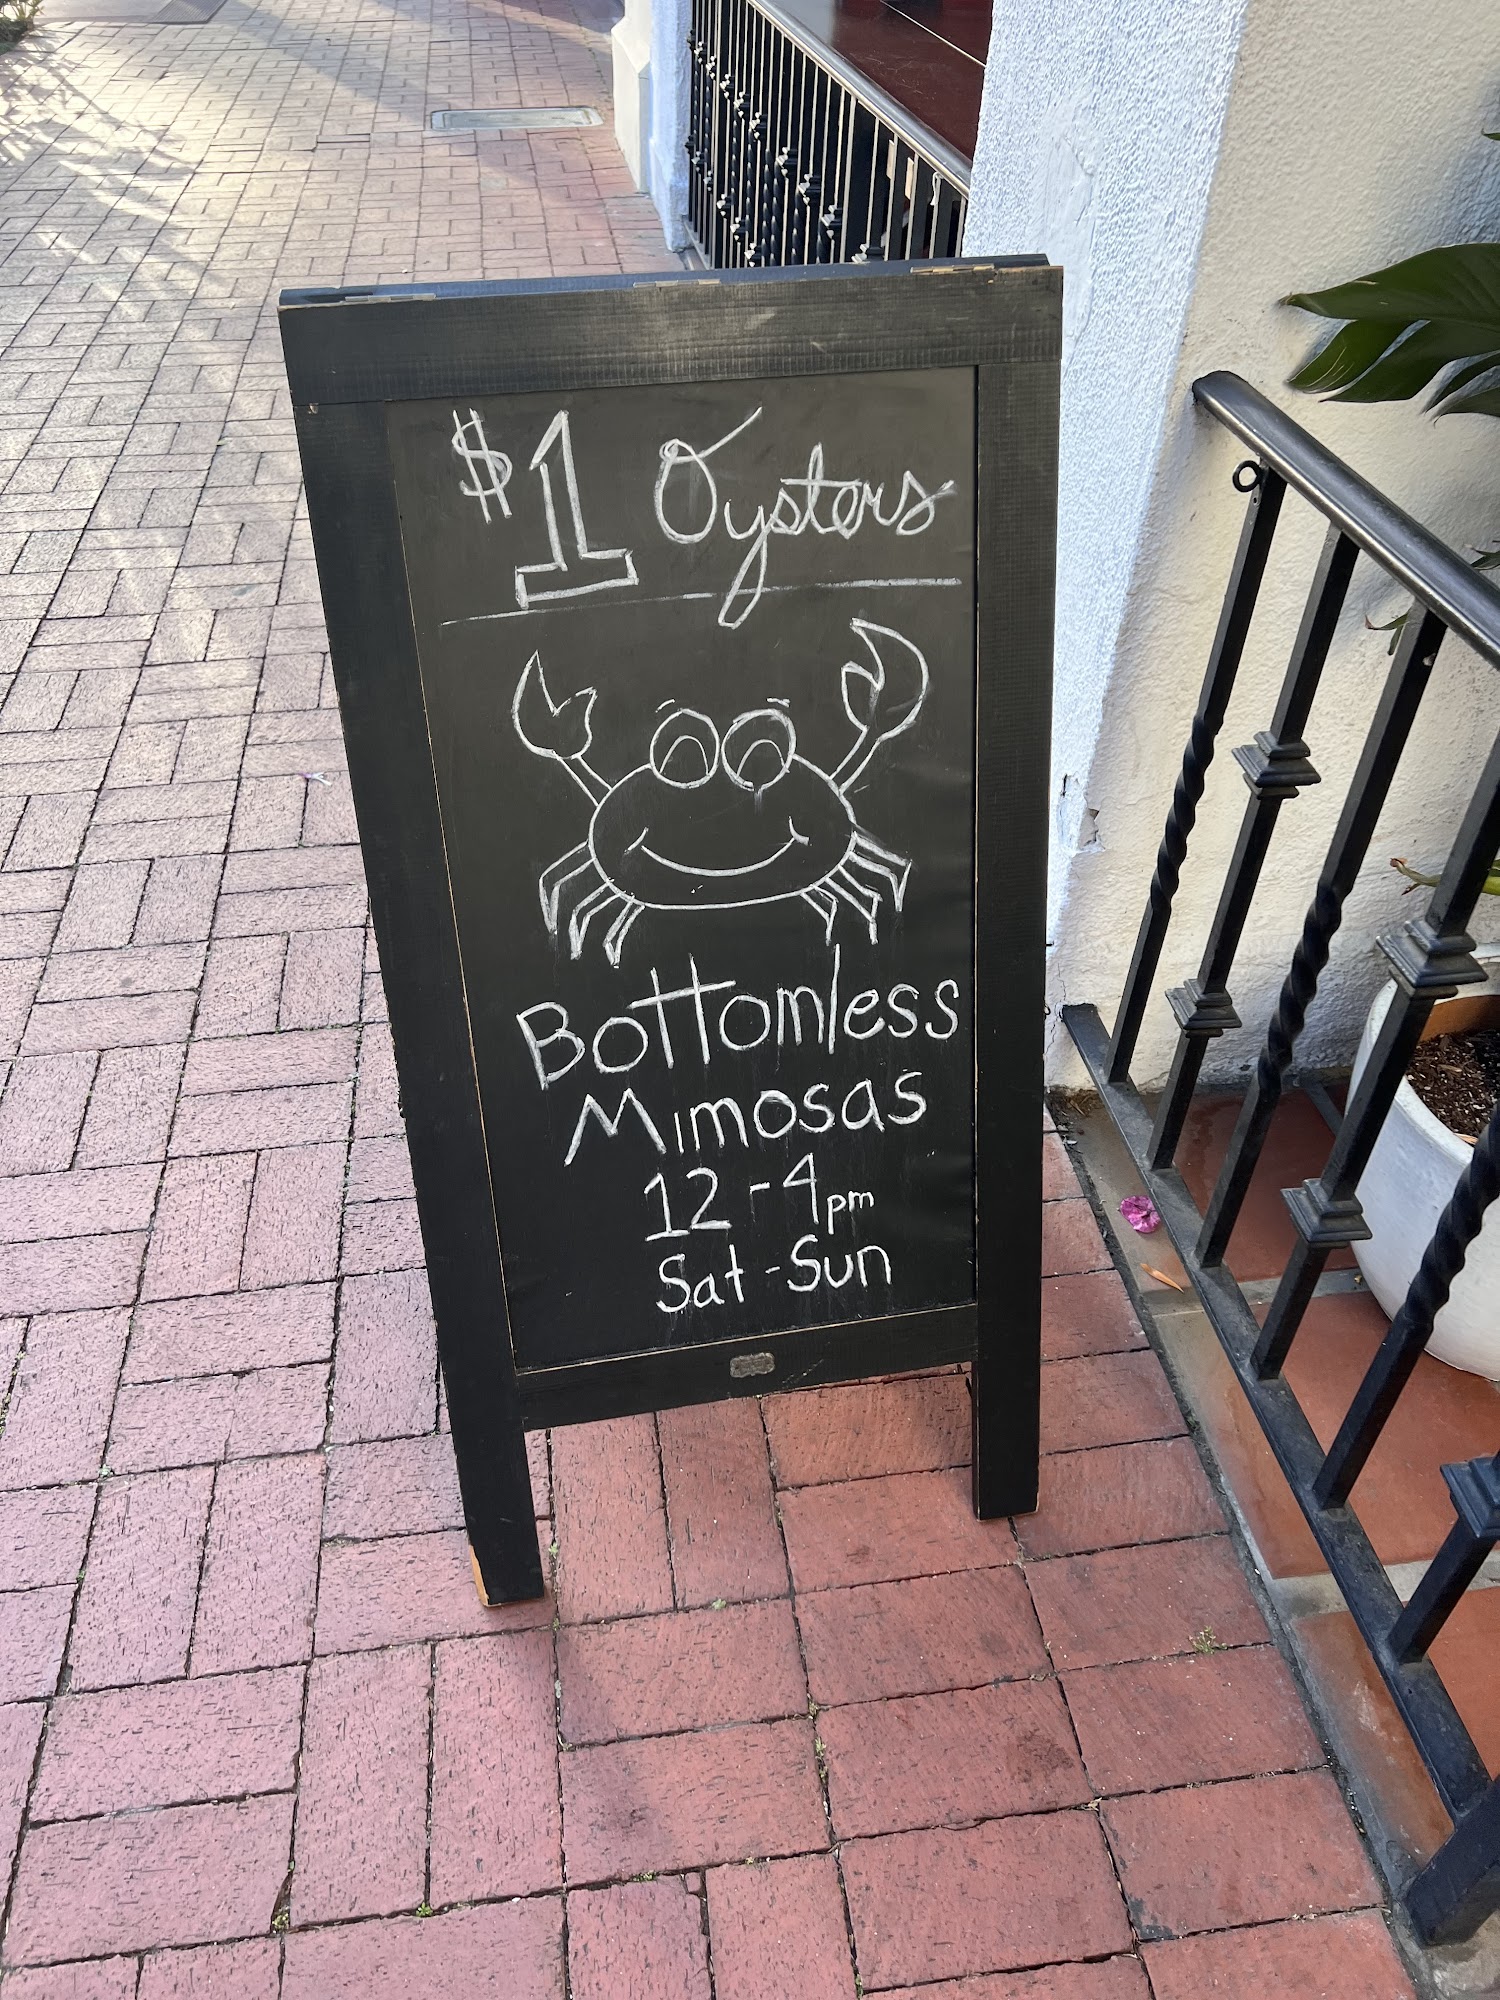 $1 Oysters
Bottomless
Mimosas
12-4pm
Sat-Sun